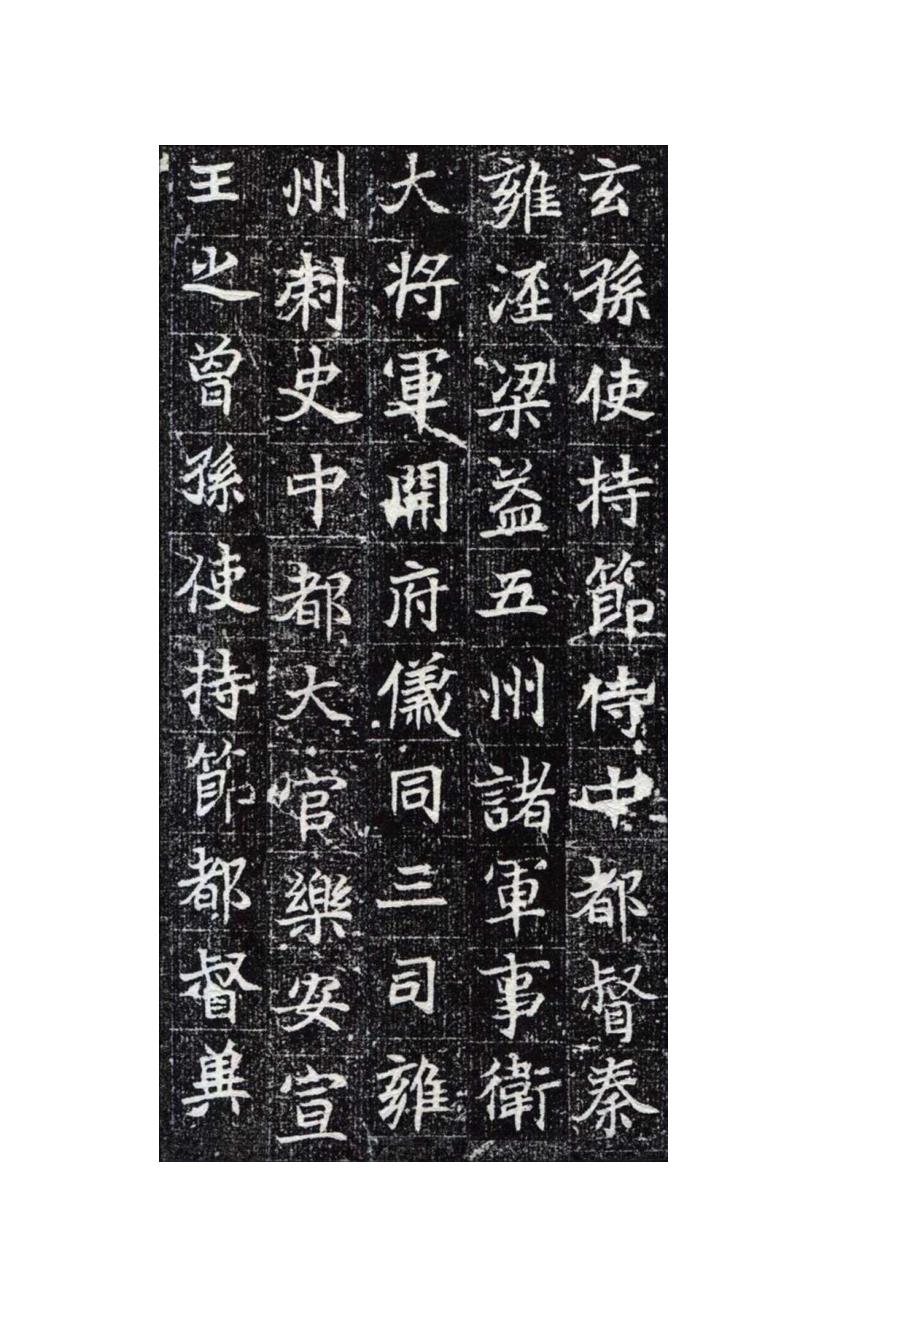 玄孫使持節侍中都督秦
雍涇梁益五州諸軍事衛
大将軍開府儀同三司雍
州刺史中都大官樂安宣
王之曾孫使持節都督兾